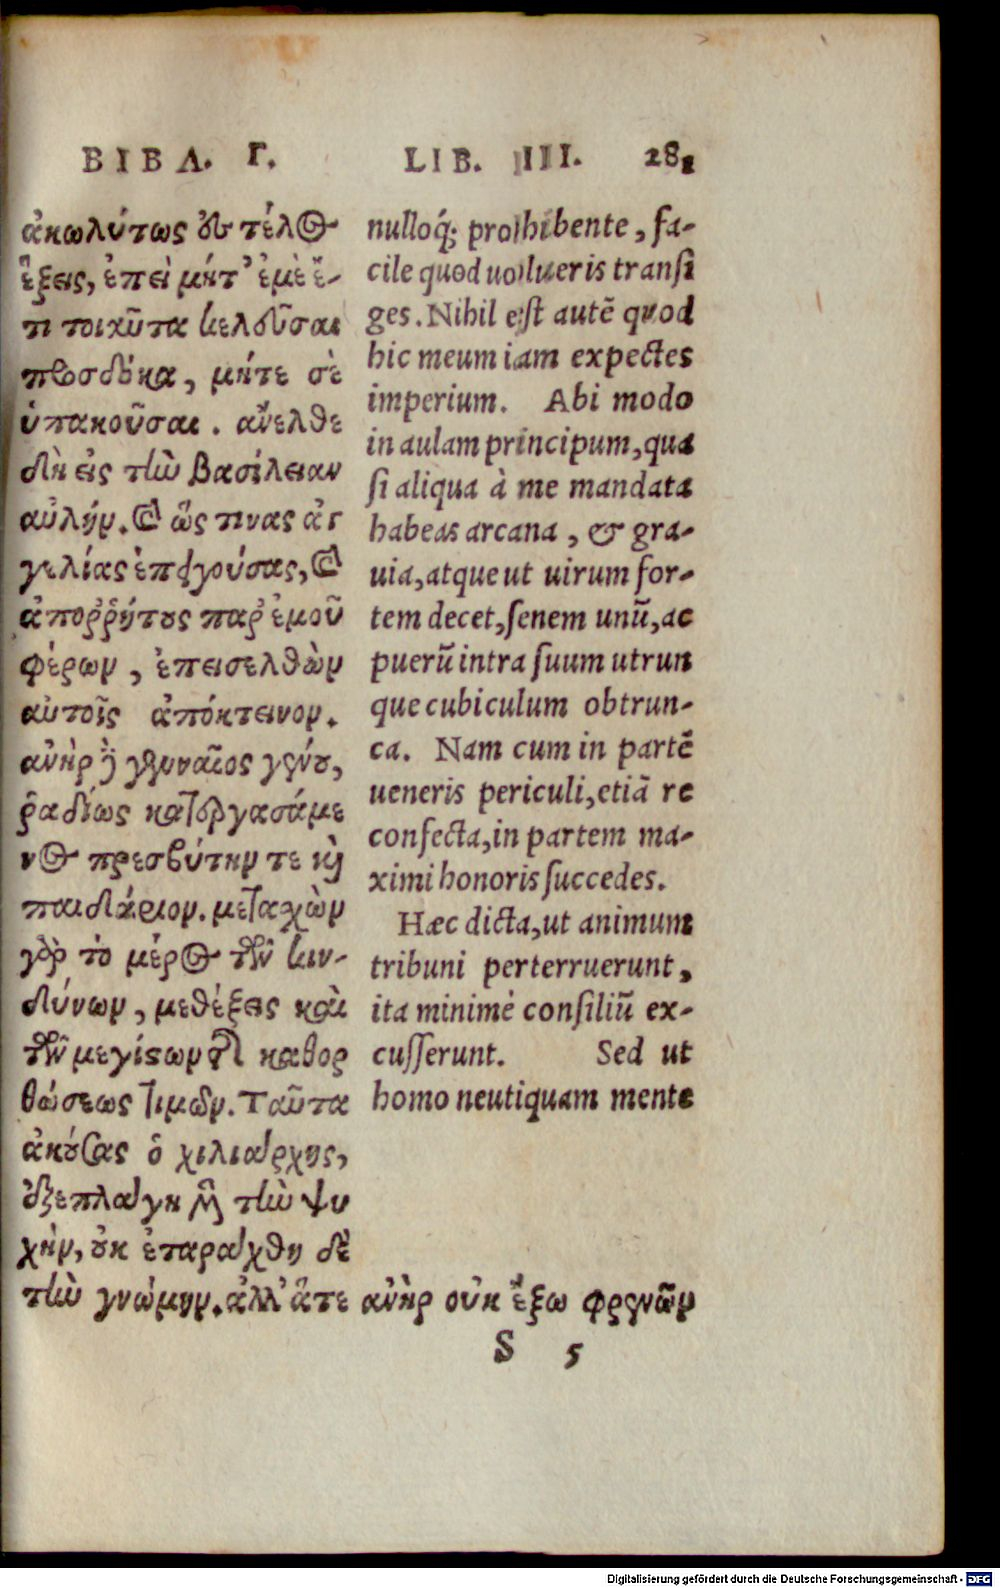 ΒΙΒΛ. Γ.
ἀκωλύτως οὖ τέλος
ἕξεις, ἐπεὶ μήτ' ἐμὲ ἔ-
τι τοιαῦτα κελεῦσαι
προσδόκα, μήτε σὲ
ὑπακοῦσαι. ἄνελθε
δὴ εἰς τὴν βασίλειαν
αὐλήν. καὶ ὥς τινας ἀγ
γελίας ἐπειγούσας, καὶ
ἀποῤῥήτους παρ' ἐμοῦ
φέρων, ἐπεισελθὼν
αὐτοῖς ἀπόκτεινον.
ἀνὴρ γενναῖος γενοῦ,
ῥᾳδίως κατεργασάμε
νος πρεσβύτην τε καὶ
παιδάριον. μετασχὼν
γὰρ τὸ μέρος τῶν κιν-
δύνων, μεθέξεις καὶ
τῶν μεγίστων τῆς κατορ
θώσεως τιμῶν. Ταῦτα
ἀκούσας ὁ χιλιάρχης,
ἐξεπλάγη μὲν τὴν ψυ
χὴν, οὐκ ἐταράχθη δὲ
τὴν γνώμην. ἀλλ' ἅτε ἀνὴρ οὐκ ἔξω φρενῶν
LIB. III. 281
nulloq́; prohibente, fa-
cile quod uolueris transi
ges. Nihil est autẽ quod
hic meum iam expectes
imperium. Abi modo
in aulam principum, qua
si aliqua à me mandata
habeas arcana, & gra-
uia, atque ut uirum for-
tem decet, senem unũ, ac
puerũ intra suum utrun
que cubiculum obtrun-
ca. Nam cum in partẽ
ueneris periculi, etiã re
confecta, in partem ma-
ximi honoris succedes.
Hæc dicta, ut animum
tribuni perterruerunt,
ita minimè consiliũ ex-
cusserunt. Sed ut
homo neutiquam mente
S 5
Digitalisierung gefördert durch die Deutsche Forschungsgemeinschaft - DFG